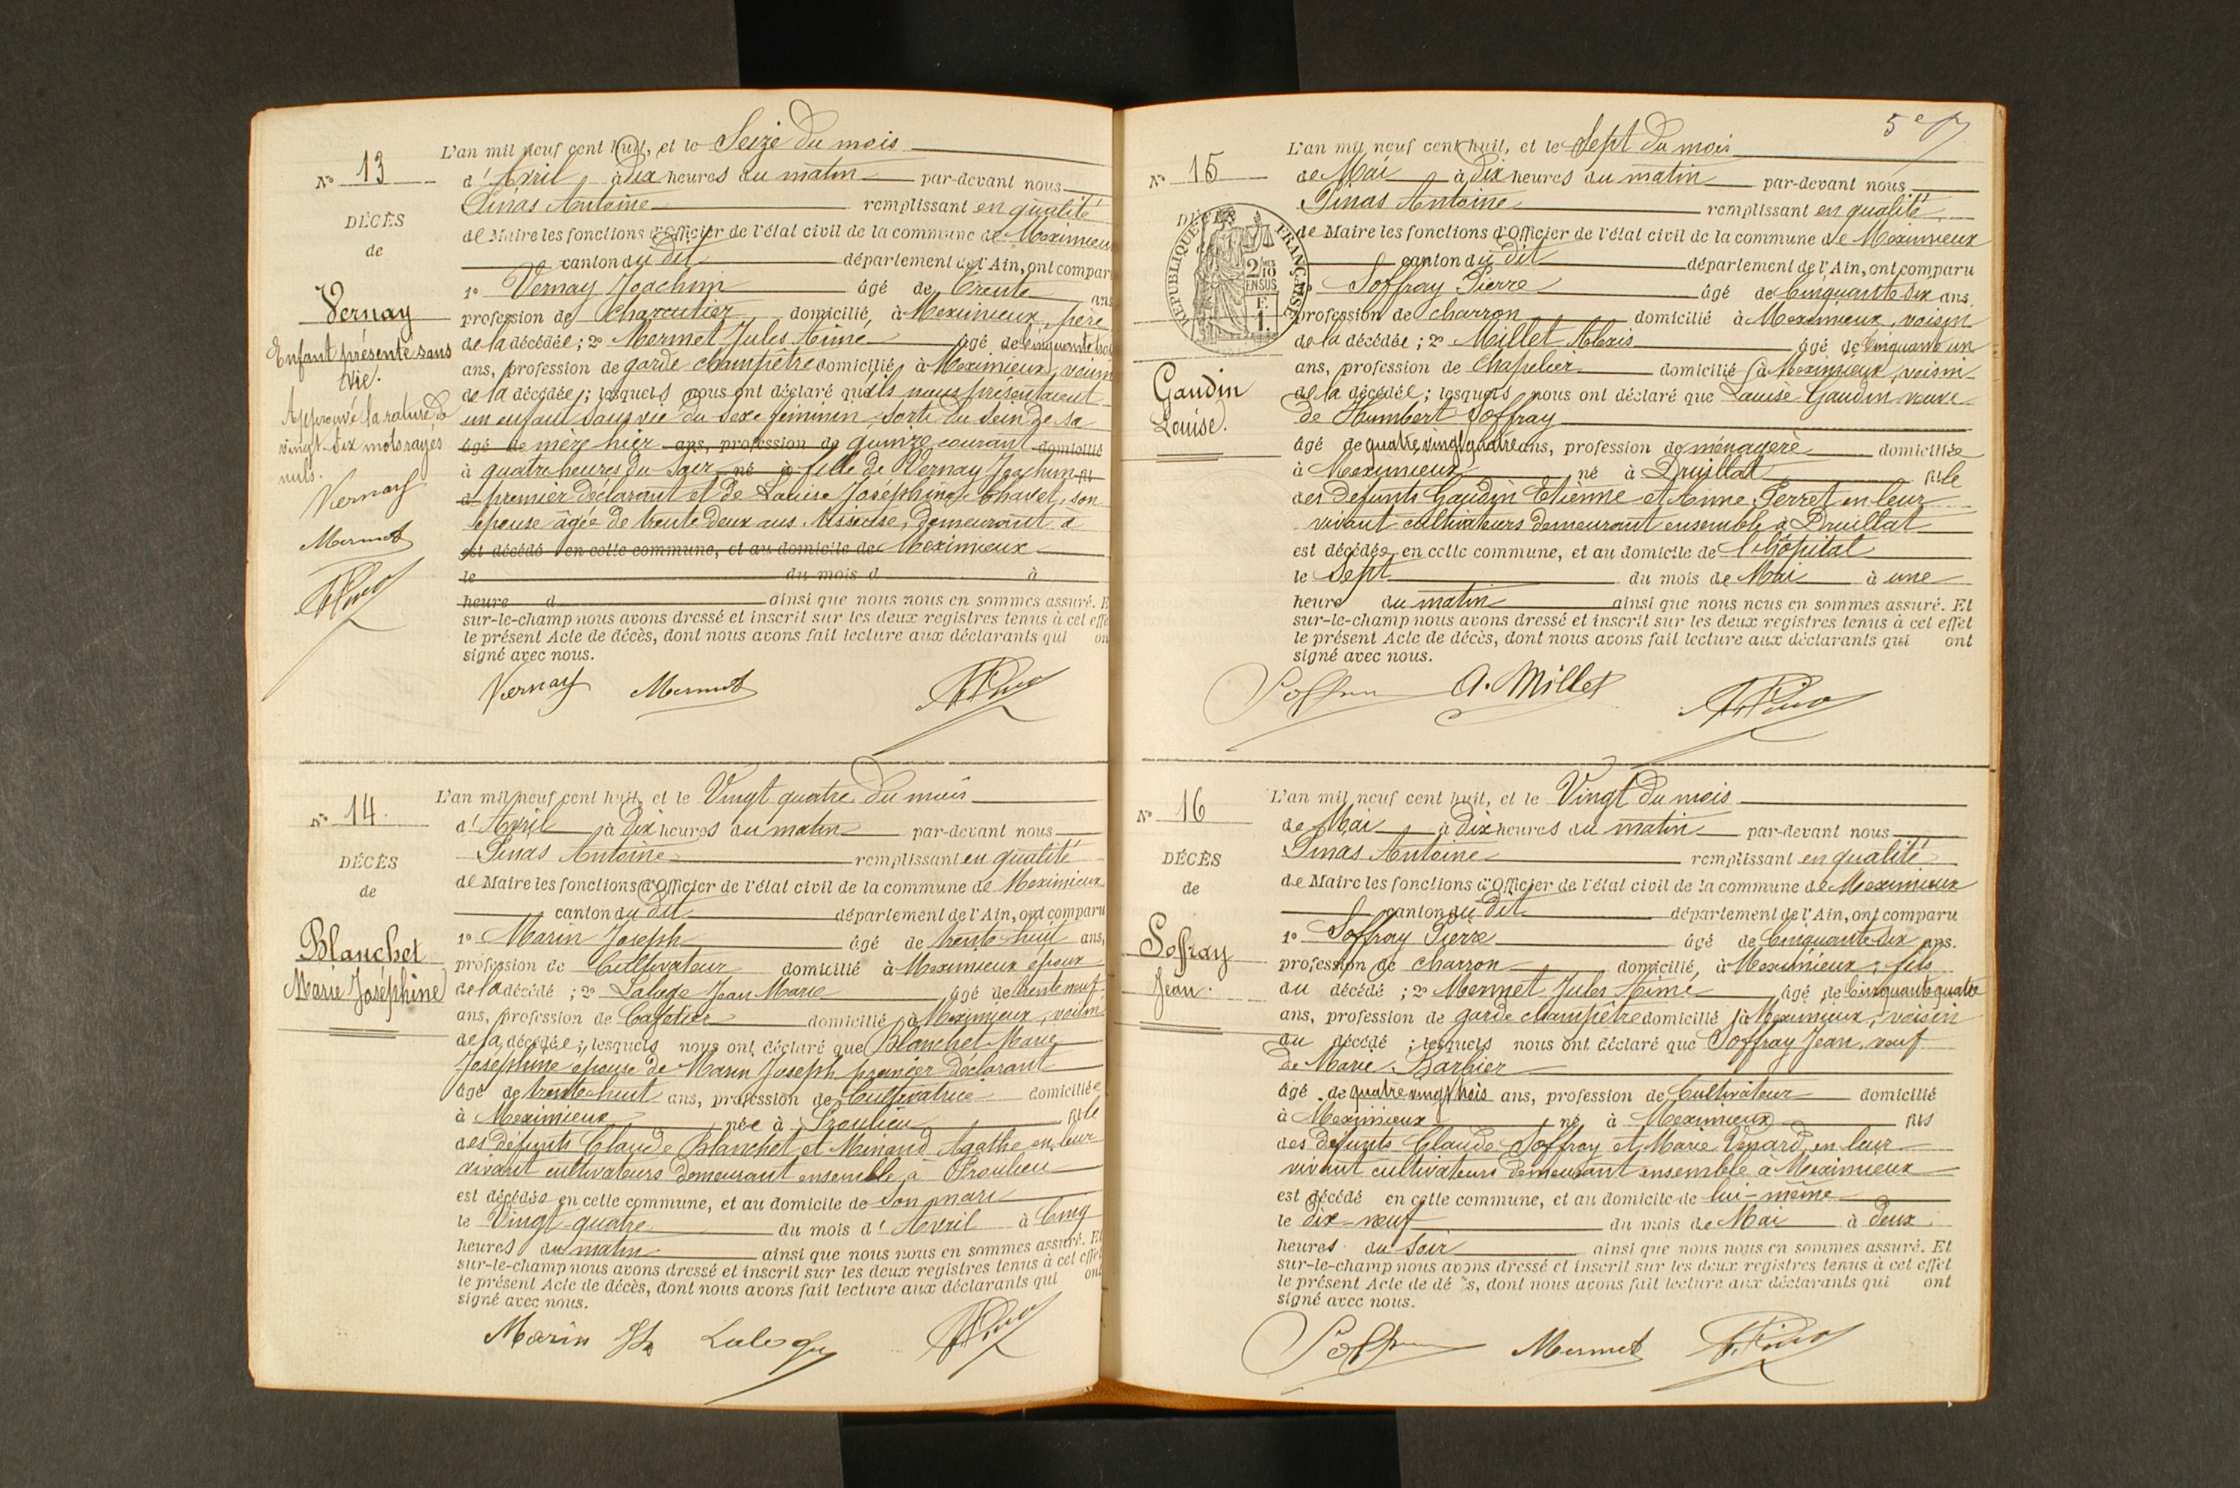 N° 13
DÉCÈS
de
Vernay
Enfant présenté sans
vie.
Approuvé la rature de
vingt-six mots rayés
nuls.
Vernay
Mermet
L'an mil neuf cent huit, et le Seize du mois
d'Avril à Dix heures du matin par-devant nous
Pinas Antoine remplissant en qualité
de Maire les fonctions d'Officier de l'état civil de la commune de Meximieux
canton du dit département de l'Ain, ont comparu
1° Vernay Joachim âgé de trente ans
profession de charcutier domicilié, à Meximieux, père
de la décédée; 2° Mermet Jules Aimé âgé de cinquante trois
ans, profession de garde champêtre domicilié à Meximieux, voisin
de la décédée; lesquels nous ont déclaré qu'ils nous présentaient
un enfant sans vie du sexe féminin, sorti du sein de sa
âgé de mère hier ans, profession de quinze courant domicilié
à quatre heures du soir né à fille de Vernay Joachim fil
d premier déclarant et de Louise Joséphine Charvet, son
épouse âgée de trente deux ans demeurant à
est décédé en cette commune, et au domicile de Meximieux
le du mois d à
heure d ainsi que nous nous en sommes assuré. E
sur-le-champ nous avons dressé et inscrit sur les deux registres tenus à cet effe
le présent Acte de décès, dont nous avons fait lecture aux déclarants qui on
signé avec nous.
Vernay Mermet
N° 14
DÉCÈS
de
Blanchet
Marie Joséphine
L'an mil neuf cent huit, et le Vingt quatre du mois
d'Avril à Dix heures du matin par-devant nous
Pinas Antoine remplissant en qualité
de Maire les fonctions d'Officier de l'état civil de la commune de Meximieux
canton du dit département de l'Ain, ont comparu
1° Marin Joseph âgé de trente huit ans,
profession de Cultivateur domicilié à Meximieux époux
de la décédé; 2° Laluge Jean Marie âgé de trente neuf
ans, profession de Cafetier domicilié à Meximieux, voisin
de la décédée; lesquels nous ont déclaré que Blanchet Marie
Joséphine épouse de Marin Joseph premier déclarant
âgé de trente-huit ans, profession de Cultivatrice domiciliée
à Meximieux née à Proulieu fille
des défunts Claude Blanchet et Minand Agathe en leur
vivant cultivateurs demeurant ensemble à Proulieu
est décédée en cette commune, et au domicile de son mari
le Vingt-quatre du mois d'Avril à Cinq
heures du matin ainsi que nous nous en sommes assuré. Et
sur-le-champ nous avons dressé et inscrit sur les deux registres tenus à cet effet
le présent Acte de décès, dont nous avons fait lecture aux déclarants qui ont
signé avec nous.
Marin Jh Laluge
5e
N° 15
DÉCÈS
RÉPUBLIQUE FRANÇAISE
2/10 EN SUS
F.
1.
Gaudin
Louise.
L'an mil neuf cent huit, et le Sept du mois
de Mai à dix heures du matin par-devant nous
Pinas Antoine remplissant en qualité
de Maire les fonctions d'Officier de l'état civil de la commune de Meximieux
canton du dit département de l'Ain, ont comparu
Soffray Pierre âgé de Cinquante six ans,
profession de charron domicilié à Meximieux, voisin
de la décédée; 2° Millet Alexis âgé de Cinquante un
ans, profession de chapelier domicilié à Meximieux, voisin
de la décédée; lesquels nous ont déclaré que Louise Gaudin veuve
de Humbert Soffray
âgé de quatre vingt quatre ans, profession de ménagère domiciliée
à Meximieux né à Druillat fille
des défunts Gaudin Etienne et Anne Ferret en leur
vivant cultivateurs demeurant ensemble à Druillat
est décédée en cette commune, et au domicile de l'hôpital
le Sept du mois de Mai à une
heure du matin ainsi que nous nous en sommes assuré. Et
sur-le-champ nous avons dressé et inscrit sur les deux registres tenus à cet effet
le présent Acte de décès, dont nous avons fait lecture aux déclarants qui ont
signé avec nous.
A. Millet
N° 16
DÉCÈS
de
Soffray
Jean.
L'an mil neuf cent huit, et le Vingt du mois
de Mai à dix heures du matin par-devant nous
Pinas Antoine remplissant en qualité
de Maire les fonctions d'Officier de l'état civil de la commune de Meximieux
canton du dit département de l'Ain, ont comparu
1° Soffray Pierre âgé de Cinquante six ans.
profession de charron domicilié, à Meximieux, fils
du décédé; 2° Mermet Jules Aimé âgé de Cinquante quatre
ans, profession de garde champêtre domicilié à Meximieux, voisin
du décédé; lesquels nous ont déclaré que Soffray Jean, veuf
de Marie Barbier
âgé de quatre vingt trois ans, profession de Cultivateur domicilié
à Meximieux né à Meximieux fils
des défunts Claude Soffray et Marie en leur
vivant cultivateurs demeurant ensemble à Meximieux
est décédé en cette commune, et au domicile de lui-même
le dix-neuf du mois de Mai à deux
heures du soir ainsi que nous nous en sommes assuré. Et
sur-le-champ nous avons dressé et inscrit sur les deux registres tenus à cet effet
le présent Acte de dé s, dont nous avons fait lecture aux déclarants qui ont
signé avec nous.
Mermet